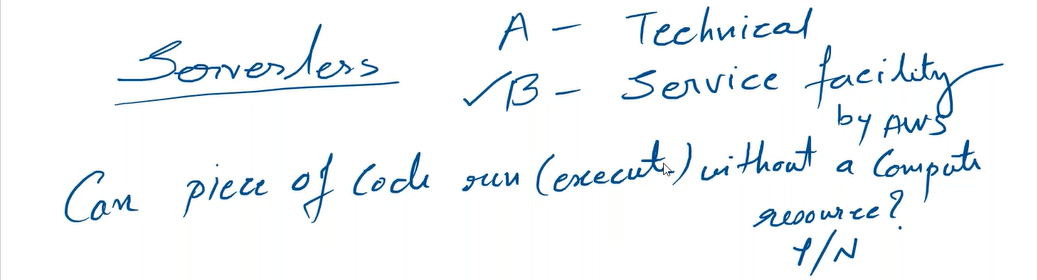 Serverless
A - Technical
✓B - Service facility
by AWS
Can piece of Code run (execute) without a Compute
resource?
Y/N